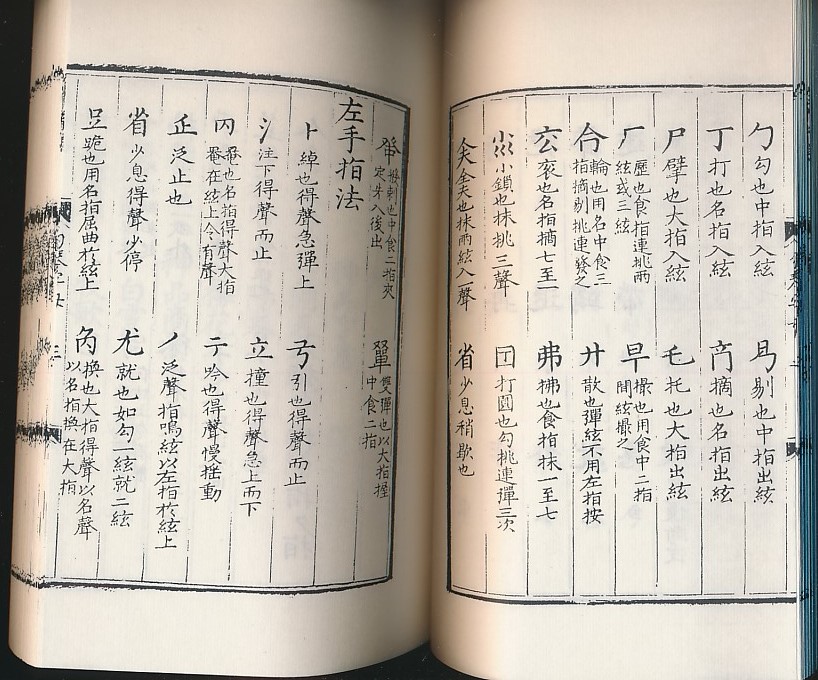 勹 勾也中指入絃 㐆 剔也中指出絃
丁 打也名指入絃 𠔿 摘也名指出絃
尸 擘也大指入絃 乇 托也大指出絃
厂 歷也食指連挑兩絃或三絃 早 撮也用食中二指開絃撮之
合 輪也用名中食三指摘剔挑連發之 廾 散也彈絃不用左指按
厷 衮也名指摘七至一 弗 拂也食指抹一至七
小鎖也抹挑三聲 囗 打圓也勾挑連彈三次
仝夫也抹兩絃入一聲 省 少息稍歇也
刺也中食二指夾定并入後出 單 雙彈也以大指握中食二指
左手指法
卜 綽也得聲急彈上 弓 引也得聲而止
氵 注下得聲而止 立 撞也得聲急上而下
罨也名指得聲大指罨在絃上令有聲 亍 吟也得聲慢揺動
正 泛止也 丿 泛聲指鳴絃以左指於絃上
省 少息得聲少停 尤 就也如勾一絃就二絃
𧾷 跪也用名指屈曲於絃上 换也大指得聲以名聲以名指换在大指